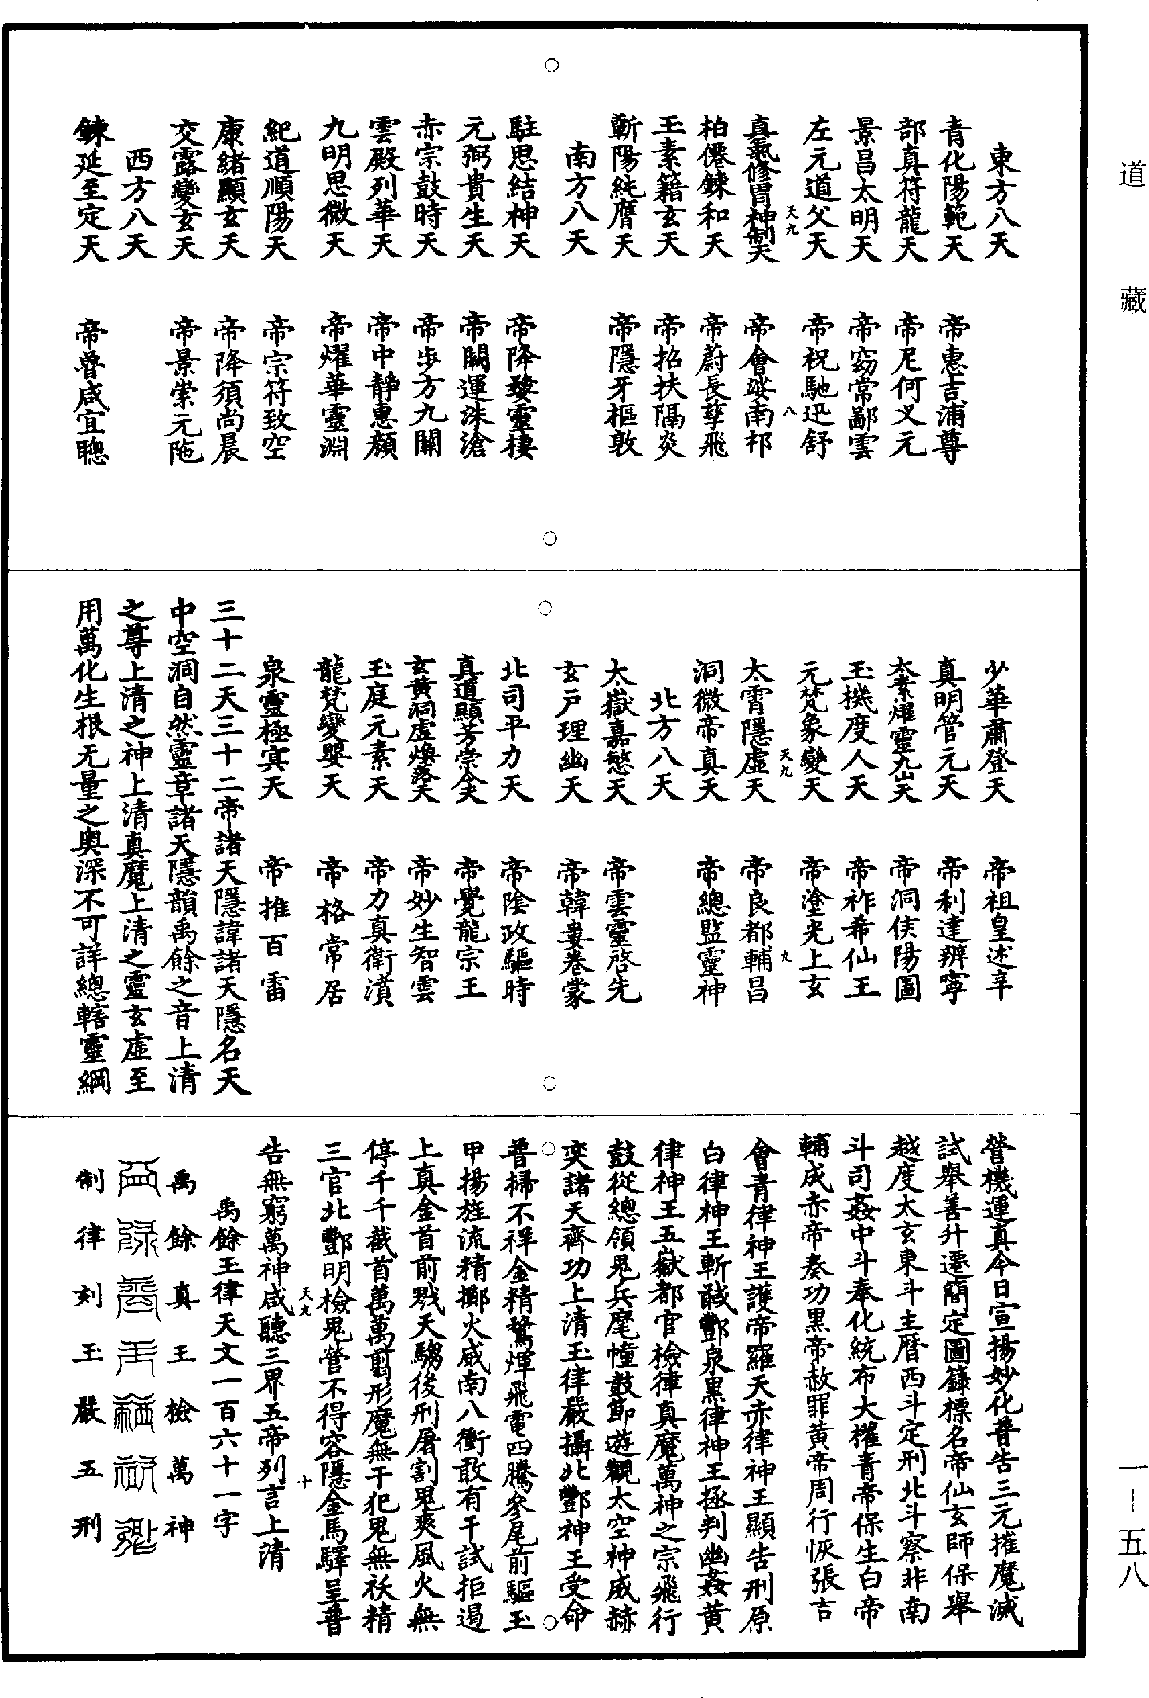 道藏
東方八天
青化陽範天 帝惠吉浦尊
部真符龍天 帝尼何叉元
景昌太明天 帝窈常鄙雲
左元道父天 帝祝馳迅舒
真氣修胃神制天 帝會 南邗
柏僊鍊和天 帝蔚長孳飛
玉素籍玄天 帝招扶隔炎
斬陽純膺天 帝隱牙樞敦
南方八天
駐思結神天 帝降 靈棲
元弼貴生天 帝關運洙滄
赤宗鼓時天 帝步方九關
雲殿列華天 帝中靜惠顏
九明思微天 帝燿華靈淵
紀道順陽天 帝宗符致空
康緒顯玄天 帝降須尚晨
交露變玄天 帝景崇元陁
西方八天
鍊延至定天 帝曾咸宜聰
少華肅登天 帝祖皇述辛
真明管元天 帝利達辨寧
太素燿靈九山天 帝洞侠陽圖
玉機度人天 帝祚希仙王
元梵象變天 帝塗光上玄
太霄隱虛天 帝良都輔昌
洞微帝真天 帝總監靈神
北方八天
太嶽嘉慜天 帝雲靈啓先
玄戸理幽天 帝韓婁卷蒙
北司平力天 帝陰政驅時
真道顯芳崇令天 帝覺龍宗王
玄黃洞虛煥落天 帝妙生智雲
玉庭元素天 帝力真衛濆
龍梵變嬰天 帝格常居
泉靈極㝠天 帝推百雷
三十二天三十二帝諸天隱諱諸天隱名天
中空洞自然靈章諸天隱韻禹餘之音上清
之尊上清之神上清真魔上清之靈玄虛至
用萬化生根无量之奥深不可詳總轄靈綱
營機運真今日宣揚妙化普告三元摧魔滅
試舉善升遷簡定圖籙標名帝仙玄師保舉
越度太玄東斗主曆西斗定刑北斗察非南
斗司姦中斗奉化統布大權青帝保生白帝
輔成赤帝奏功黑帝赦罪黃帝周行恢張吉
會青律神王護帝羅天赤律神王顯告刑原
白律神王斬馘酆泉黑律神王極判幽姦黃
律神王五嶽都官檢律真魔萬神之宗飛行
鼓從總領鬼兵麾幢鼓節遊觀太空神威赫
奕諸天齊功上清玉律嚴攝北酆神王受命
普掃不祥金精騖煇飛電四騰參尾前驅玉
甲揚旌流精擲火威南八衝敢有干試拒遏
上真金首前戮天騶後刑屠割鬼爽風火無
停千千截首萬萬翦形魔無干犯鬼無祅精
三官北酆明檢鬼營不得容隱金馬驛呈普
告無窮萬神咸聽三界五帝列言上清
禹餘玉律天文一百六十一字
禹餘真王檢萬神
制律刻玉嚴五刑
天九
八
天九
九
天九
十
一—五八